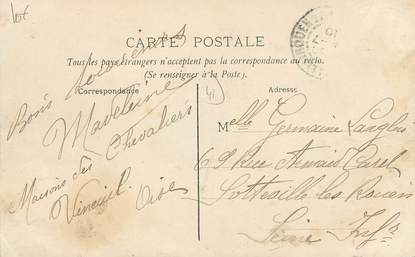 lot
CARTE POSTALE
Tous les pays étrangers n'acceptent pas la correspondance au recto.
(Se renseigner à la Poste).
Correspondance
Adresse
41
Bons souvenirs
Madeleine
Chevaliers
Maisons des
Vineuil. Oise
Melle Germaine Langlois
69 Rue
Sotteville les Rouen
Seine Infre